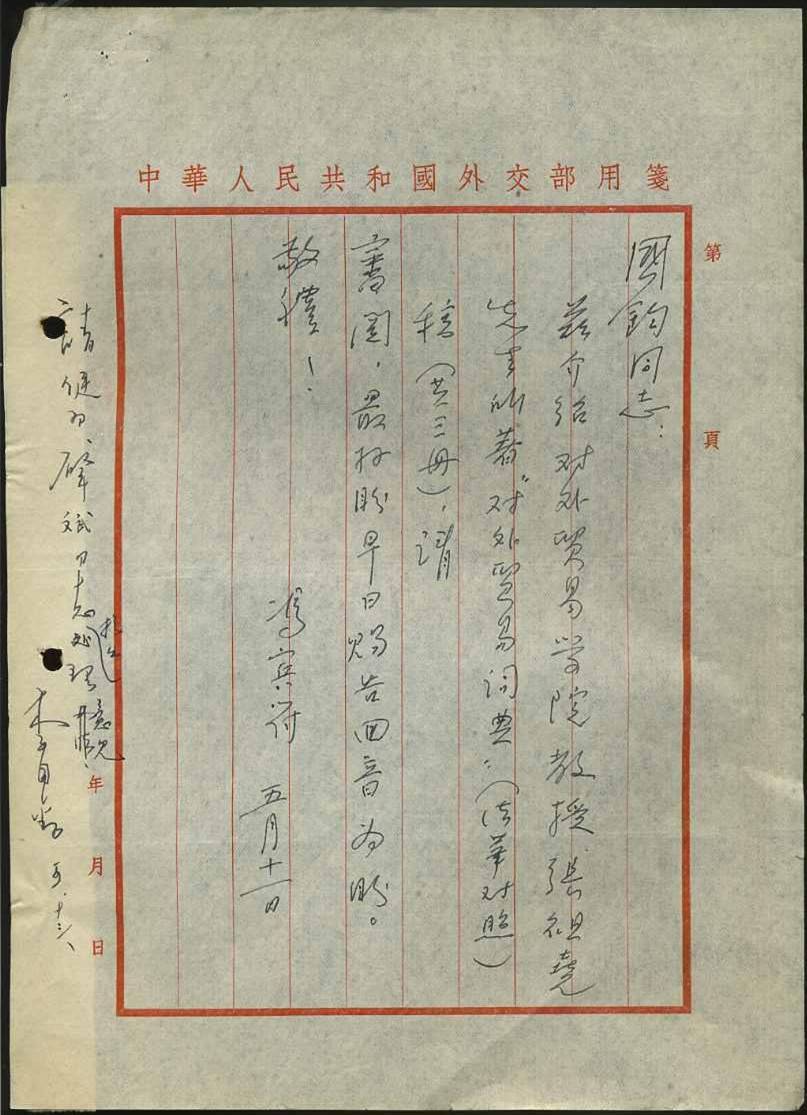 中華人民共和國外交部用箋
第 頁
國鈞同志：
茲介绍对外貿易学院教授張祖堯
先生所著“对外貿易词典”（法華对照）
稿（共三册），请
審閱，最好盼早日赐告回音为盼。
敬禮！
馮宾符 五月十一日
請 斌同志处理
提出 意見
年 月 日